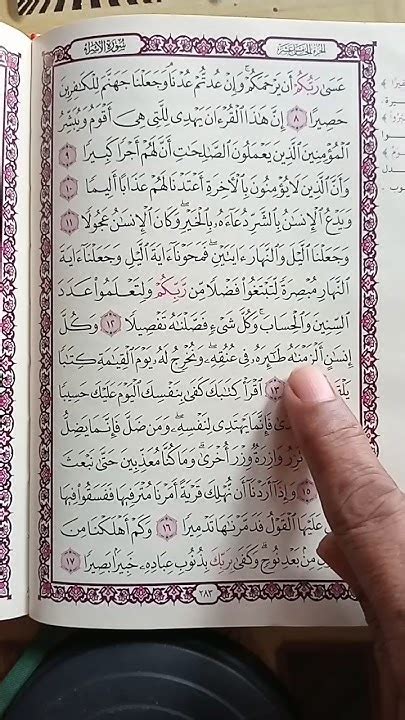 سورة الإسراء
الجزء الخامس عشر
عَسَىٰ رَبُّكُمْ أَن يَرْحَمَكُمْ وَإِنْ عُدتُّمْ عُدْنَا وَجَعَلْنَا جَهَنَّمَ لِلْكَٰفِرِينَ
حَصِيرًا ٨ إِنَّ هَٰذَا ٱلْقُرْءَانَ يَهْدِى لِلَّتِى هِىَ أَقْوَمُ وَيُبَشِّرُ
ٱلْمُؤْمِنِينَ ٱلَّذِينَ يَعْمَلُونَ ٱلصَّٰلِحَٰتِ أَنَّ لَهُمْ أَجْرًا كَبِيرًا ٩
وَأَنَّ ٱلَّذِينَ لَا يُؤْمِنُونَ بِٱلْءَاخِرَةِ أَعْتَدْنَا لَهُمْ عَذَابًا أَلِيمًا ١٠
وَيَدْعُ ٱلْإِنسَٰنُ بِٱلشَّرِّ دُعَآءَهُۥ بِٱلْخَيْرِ وَكَانَ ٱلْإِنسَٰنُ عَجُولًا ١١
وَجَعَلْنَا ٱلَّيْلَ وَٱلنَّهَارَ ءَايَتَيْنِ فَمَحَوْنَآ ءَايَةَ ٱلَّيْلِ وَجَعَلْنَآ ءَايَةَ
ٱلنَّهَارِ مُبْصِرَةً لِّتَبْتَغُوا۟ فَضْلًا مِّن رَّبِّكُمْ وَلِتَعْلَمُوا۟ عَدَدَ
ٱلسِّنِينَ وَٱلْحِسَابَ وَكُلَّ شَىْءٍ فَصَّلْنَٰهُ تَفْصِيلًا ١٢ وَكُلَّ
إِنسَٰنٍ أَلْزَمْنَٰهُ طَٰٓئِرَهُۥ فِى عُنُقِهِۦ وَنُخْرِجُ لَهُۥ يَوْمَ ٱلْقِيَٰمَةِ كِتَٰبًا
١٣ ٱقْرَأْ كِتَٰبَكَ كَفَىٰ بِنَفْسِكَ ٱلْيَوْمَ عَلَيْكَ حَسِيبًا
فَإِنَّمَا يَهْتَدِى لِنَفْسِهِۦ وَمَن ضَلَّ فَإِنَّمَا يَضِلُّ
وَازِرَةٌ وِزْرَ أُخْرَىٰ وَمَا كُنَّا مُعَذِّبِينَ حَتَّىٰ نَبْعَثَ
١٥ وَإِذَآ أَرَدْنَآ أَن نُّهْلِكَ قَرْيَةً أَمَرْنَا مُتْرَفِيهَا فَفَسَقُوا۟ فِيهَا
عَلَيْهَا ٱلْقَوْلُ فَدَمَّرْنَٰهَا تَدْمِيرًا ١٦ وَكَمْ أَهْلَكْنَا مِنَ
مِنۢ بَعْدِ نُوحٍ وَكَفَىٰ بِرَبِّكَ بِذُنُوبِ عِبَادِهِۦ خَبِيرًۢا بَصِيرًا ١٧
٢٨٣